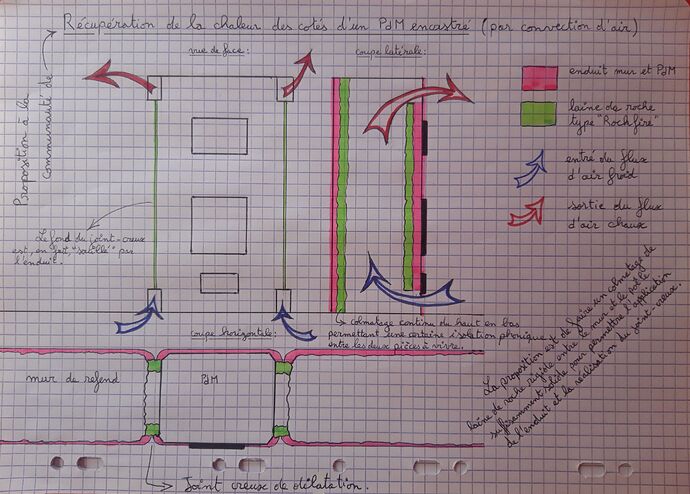 Récupération de la chaleur des cotés d'un PdM encastré (par convection d'air)
Proposition à la
communauté de
vue de face :
coupe latérale :
enduit mur et PdM
laine de roche
type "Rockfire"
entré du flux
d'air froid
sortie du flux
d'air chaux
Le fond du joint-creux
est, en fait, "scellé" par
l'enduit.
coupe horizontale :
colmatage continu du haut en bas
permettant une certaine isolation phonique
entre les deux pièces à vivre.
La proposition est de faire un colmatage de
laine de roche rigide entre le mur et le poêle
suffisamment solide pour permettre l'application
de l'enduit et la réalisation du joint creux.
mur de refend
PdM
Joint creux de dilatation.